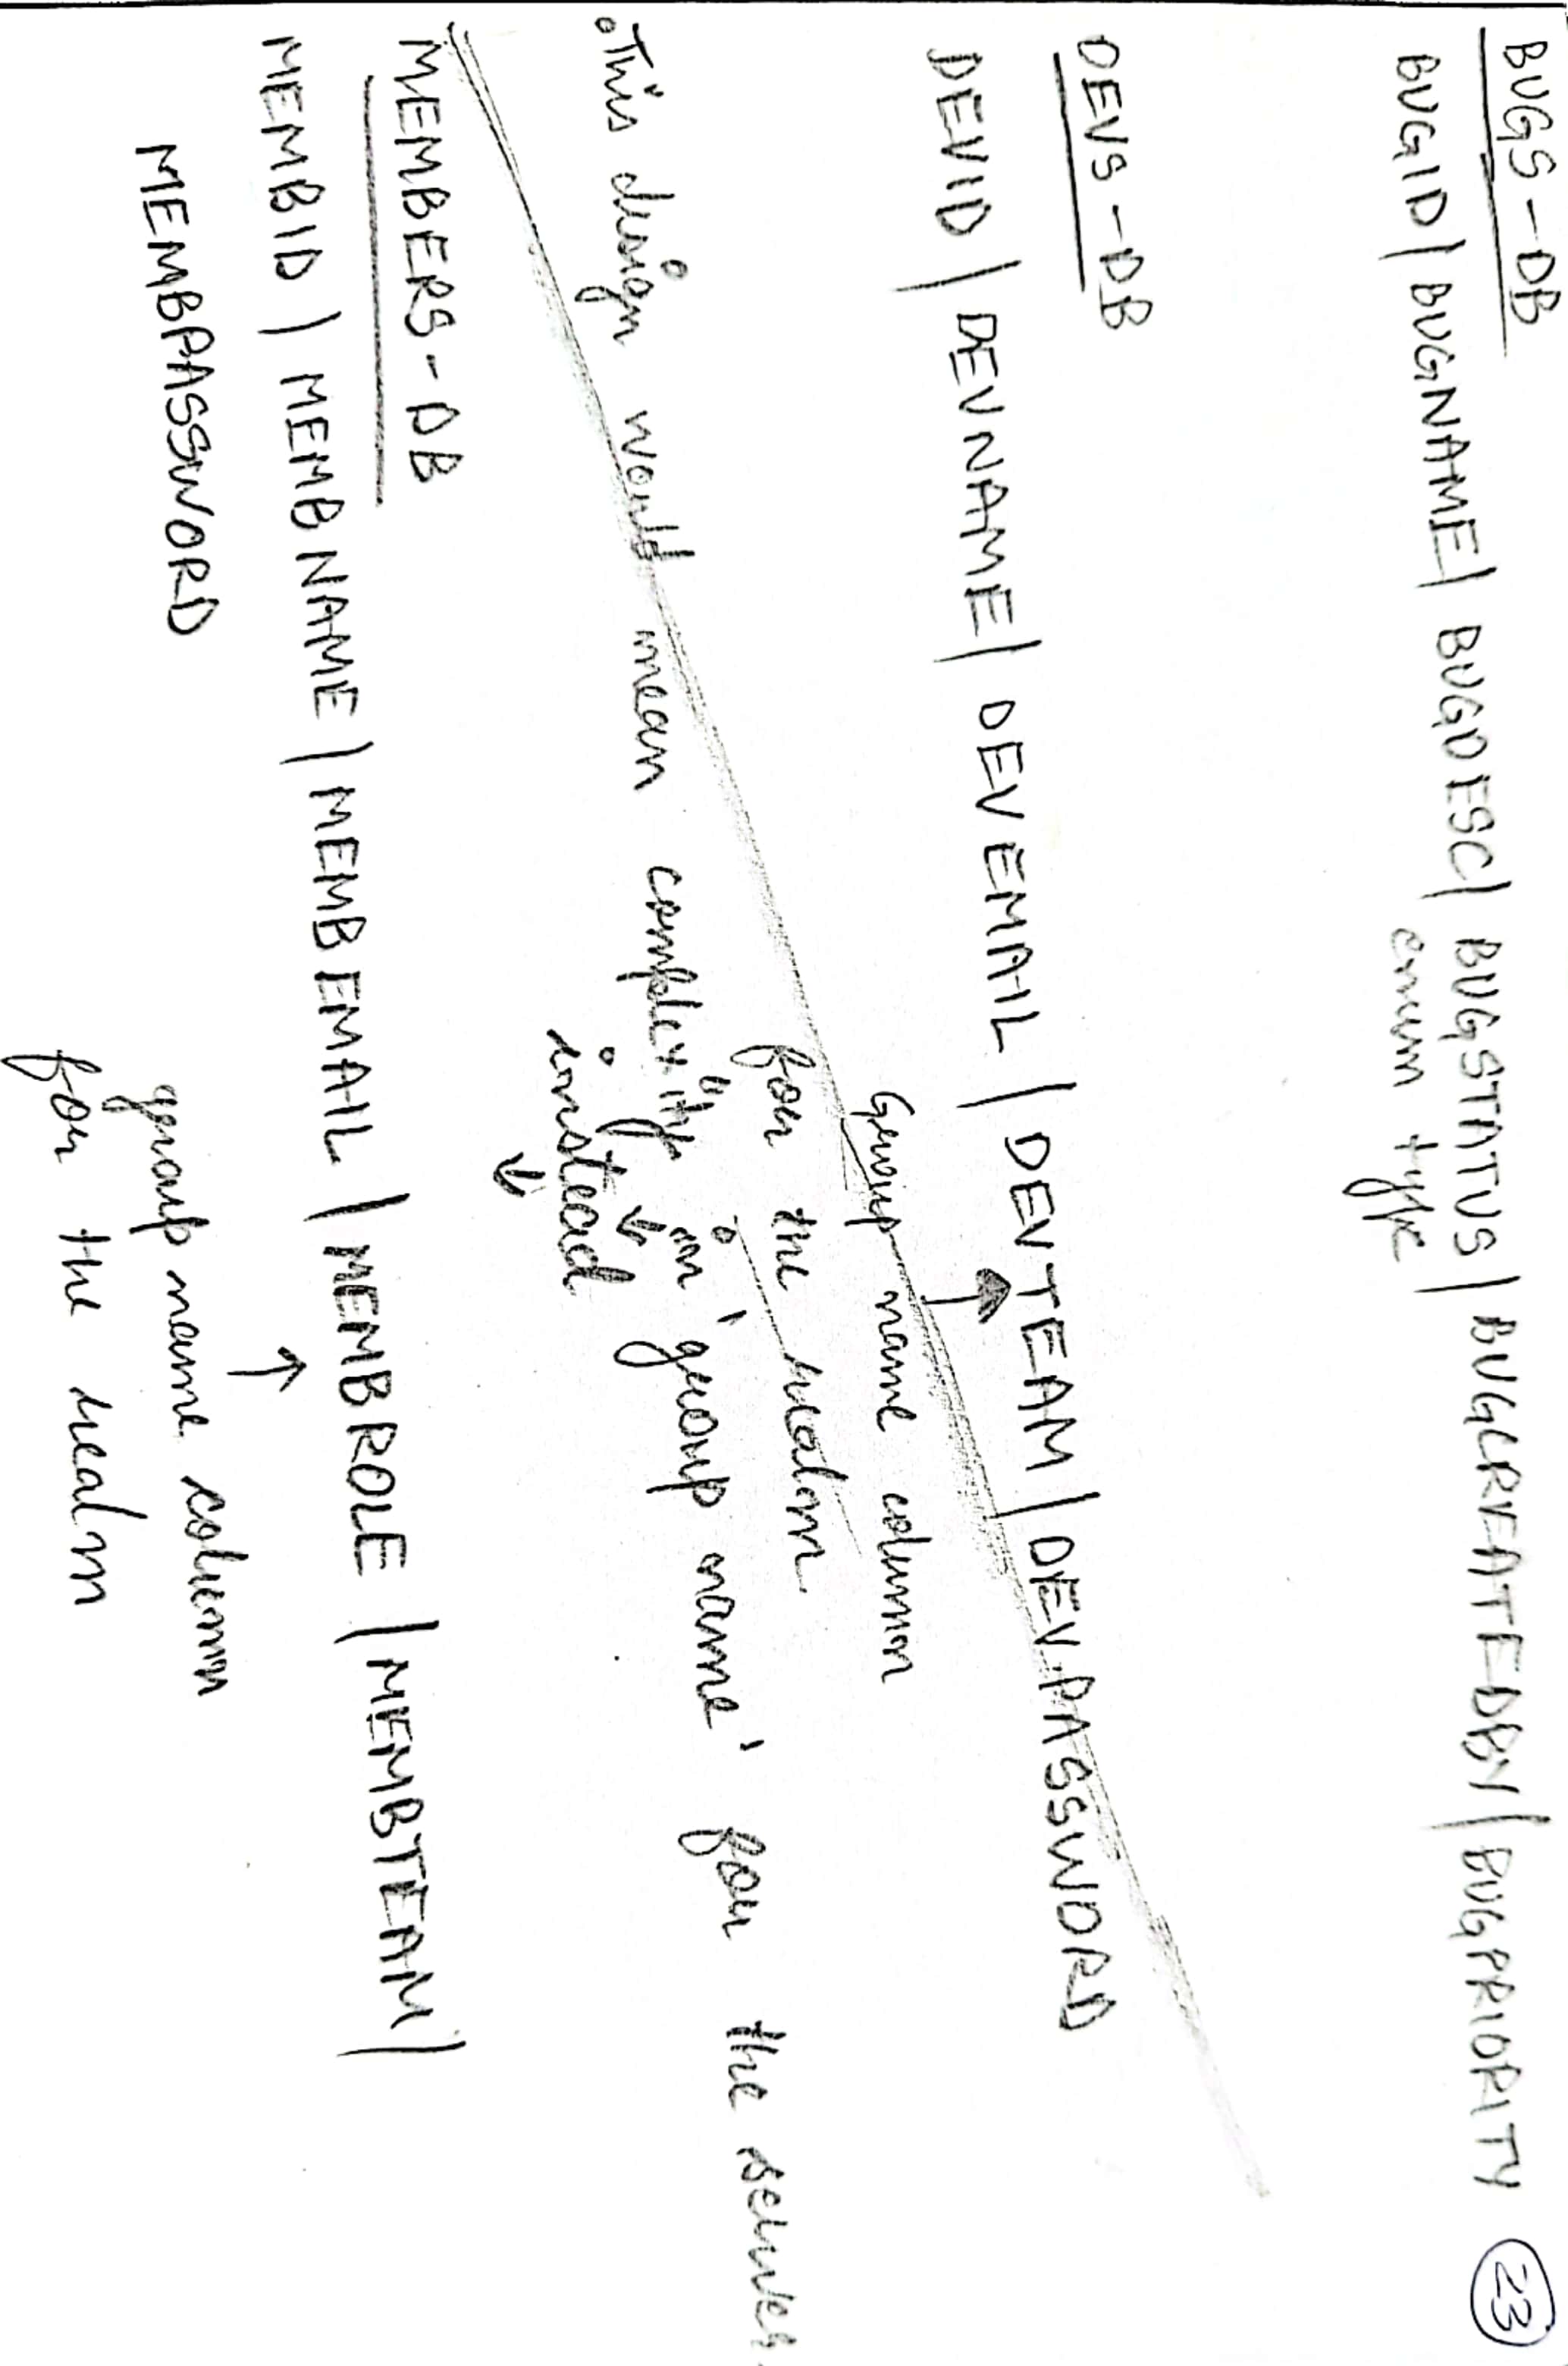 BUGS-DB
BUGID | BUGNAME | BUGDESC | BUGSTATUS | BUGCREATEDBY | BUGPRIORITY
enum type
23
DEVS-DB
DEVID | DEVNAME | DEVEMAIL | DEVTEAM | DEVPASSWORD
↑
Group name column
for the realm
This design would mean complexity in 'group name' for the server
↓
instead
↓
MEMBERS-DB
MEMBID | MEMBNAME | MEMBEMAIL | MEMBROLE | MEMBTEAM |
↑
MEMBPASSWORD
group name column
for the realm